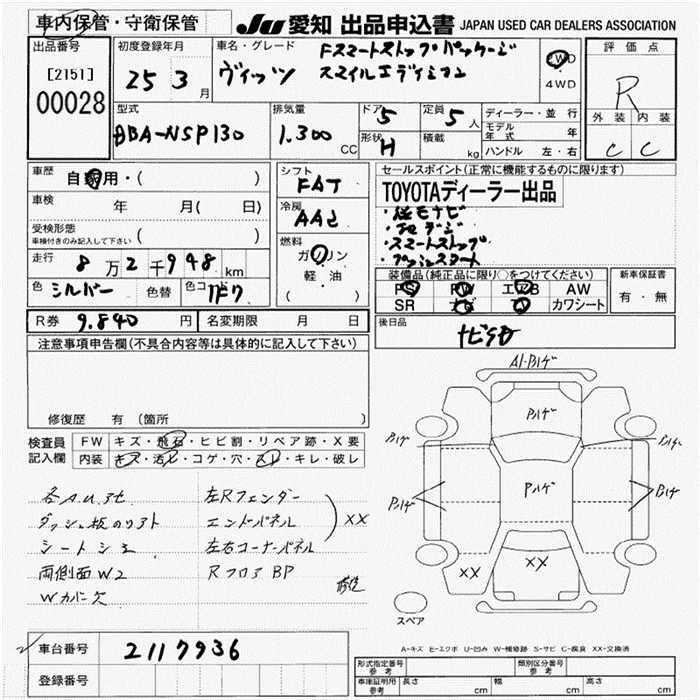 車内保管・守衛保管
JU 愛知 出品申込書 JAPAN USED CAR DEALERS ASSOCIATION
出品番号
[2151]
00028
初度登録年月
25 3月
車名・グレード
Fスマートストップパッケージ
ヴィッツ スマイルエディション
2WD
4WD
評価点
R
外装 内装
C C
型式
DBA-NSP130
排気量
1.300 CC
ドア 5
形状 H
定員 5人
積載 kg
ディーラー・並行
モデル年式 年
ハンドル 左・右
車歴 自家用・( )
車検 年 月( 日)
受検形態
車検付きのみ記入して下さい ( )
走行 8万2千948km
色 シルバー 色替 色コード 1F7
シフト
FAT
冷房
AAC
燃料
ガソリン
軽・油
( )
セールスポイント(正常に機能するものに限ります)
TOYOTAディーラー出品
・純正ナビ
・地デジ
・スマートストップ
・プッシュスタート
装備品(純正品に限り○をつけてください)
PS PW エアB AW
SR ナビ カワシート
新車保証書
有・無
R券 9.840円 名変期限 月 日
後日品
ナビSD
注意事項申告欄(不具合内容等は具体的に記入して下さい)
修復歴 有 (箇所 )
検査員記入欄
FW キズ・飛石・ヒビ割・リペア跡・X要
内装 キズ・汚レ・コゲ・穴・スレ・キレ・破レ
各A.U.3セ 左Rフェンダー
ダッシュ板のリフト エンドパネル XX
シートシミ 左右コーナーパネル
両側面W2 RフロアBP
Wカバー欠 修造
A1・Pハゲ
Pハゲ
Pハゲ
Pハゲ
Pハゲ
Pハゲ
Bハゲ
XX
XX
スペア
A-キズ E-エクボ U-凹み W-補修跡 S-サビ C-腐食 XX-交換済
車台番号 2117936
登録番号
形式指定番号 参考
類別区分番号 参考
車庫証明用 参考 長さ cm 幅 cm 高さ cm